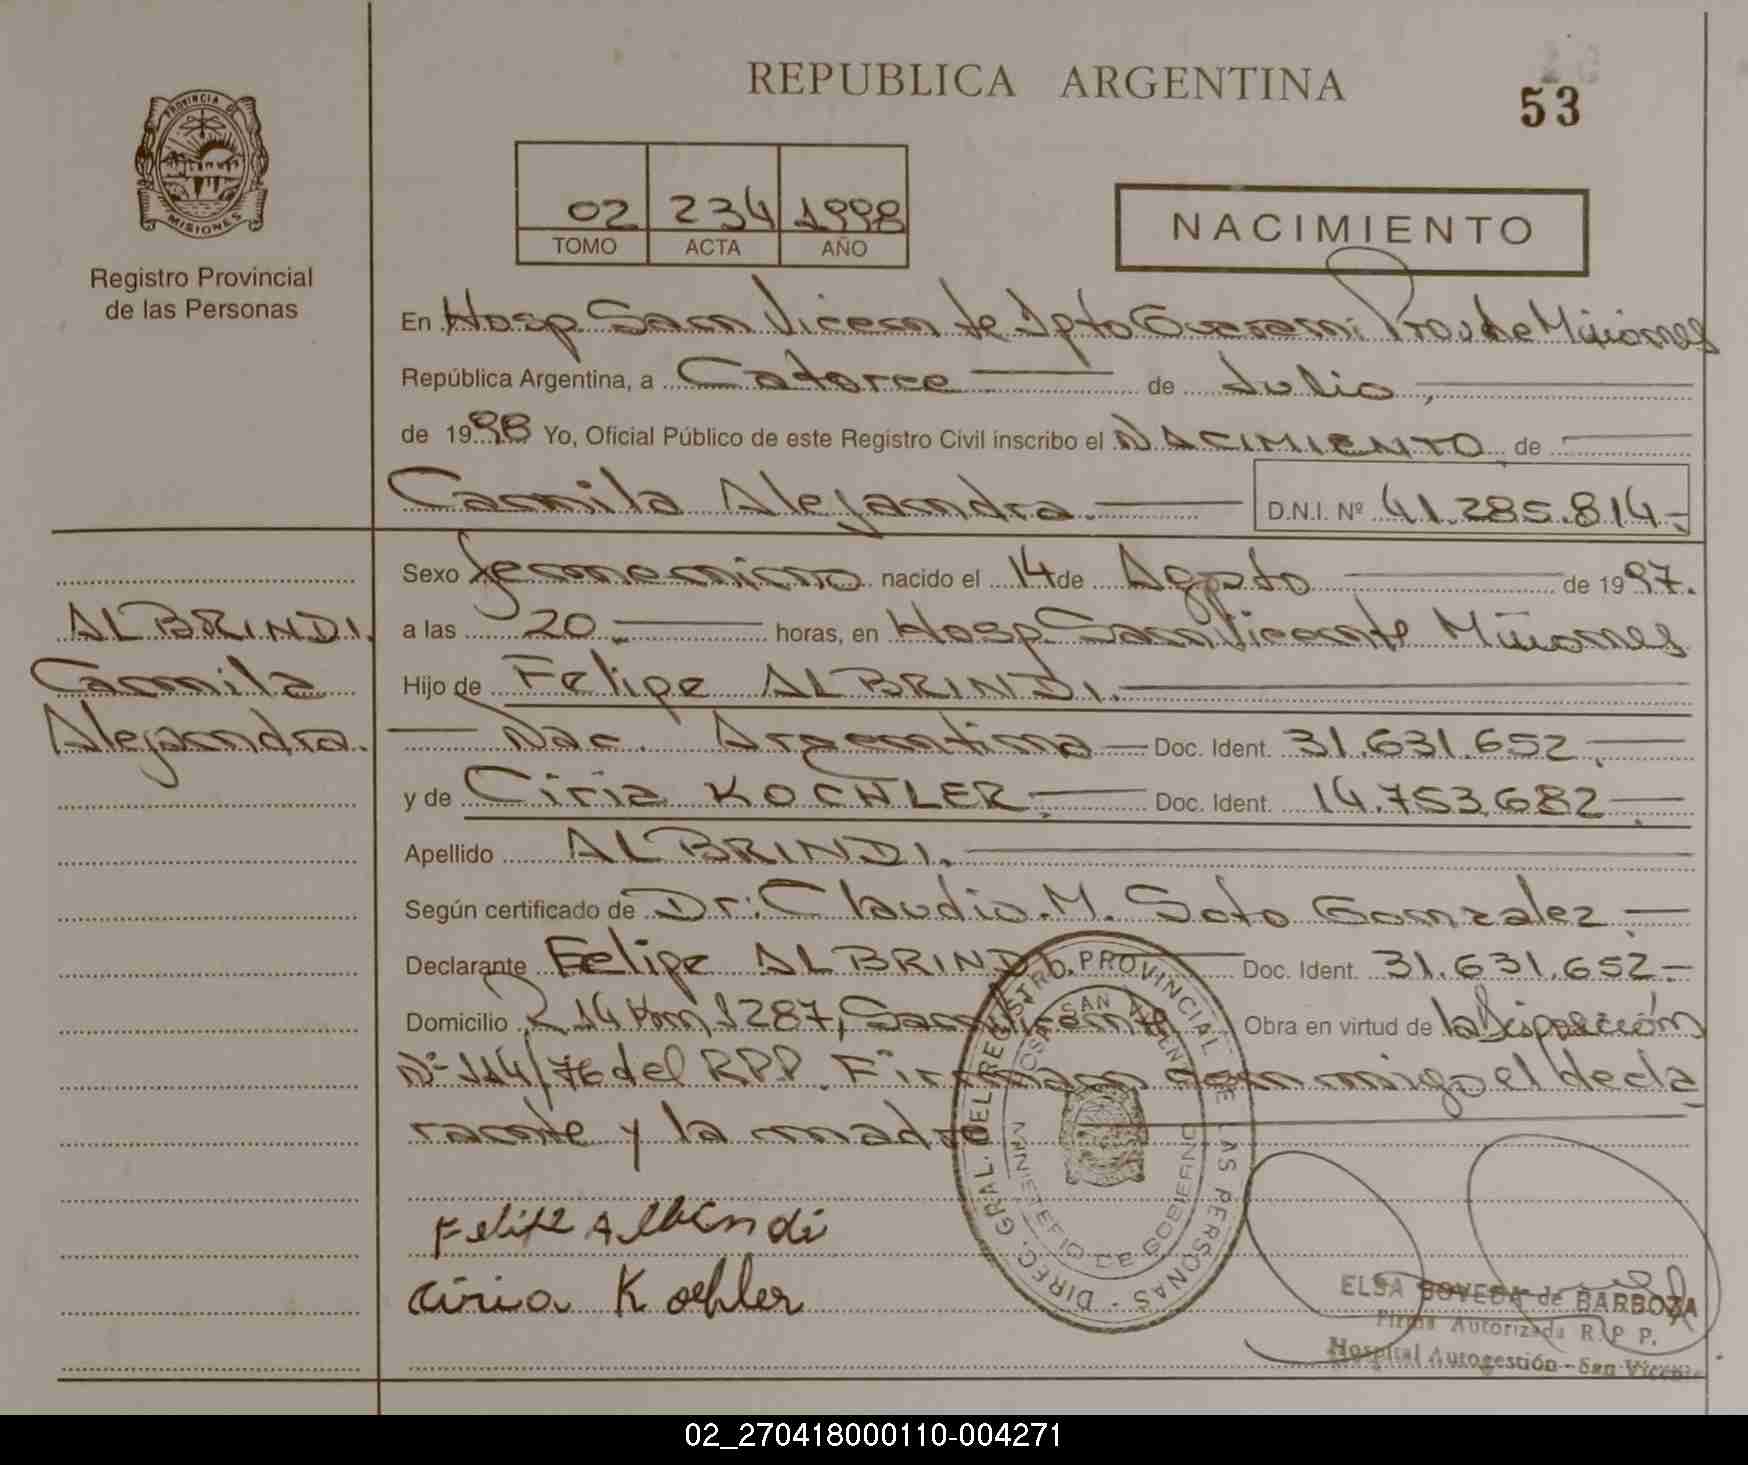 REPUBLICA ARGENTINA
53
PROVINCIA DE MISIONES
Registro Provincial
de las Personas
02 234 1998
TOMO ACTA AÑO
NACIMIENTO
En Hosp San Vicente Dpto Guarani Prov de Misiones
República Argentina, a Catorce de Julio,
de 1998 Yo, Oficial Público de este Registro Civil inscribo el NACIMIENTO de
Camila Alejandra. D.N.I. Nº 41.285.814-
Sexo femenino nacido el 14 de Agosto de 1997.
a las 20. horas, en Hosp San Vicente Misiones
Hijo de Felipe ALBRINDI.
Nac. Argentina Doc. Ident. 31.631.652.
y de Ciria KOEHLER. Doc. Ident. 14.753.682.
Apellido ALBRINDI.
Según certificado de Dr: Claudio. M. Soto Gonzalez.
Declarante Felipe ALBRINDI. Doc. Ident. 31.631.652.-
Domicilio R 14 Km 1287, San Vicente Obra en virtud de la Disposición
Nº 114/76 del RPP. Firman conmigo el decla
rante y la madre
ALBRINDI.
Camila
Alejandra.
Felipe Albrindi
Ciria Koehler
DIREC. GRAL. DEL REGISTRO PROVINCIAL DE LAS PERSONAS
HOSP. SAN VICENTE
MINISTERIO DE GOBIERNO
ELSA BOVEDA de BARBOZA
Firma Autorizada R. P. P.
Hospital Autogestión - San Vicente
02_270418000110-004271